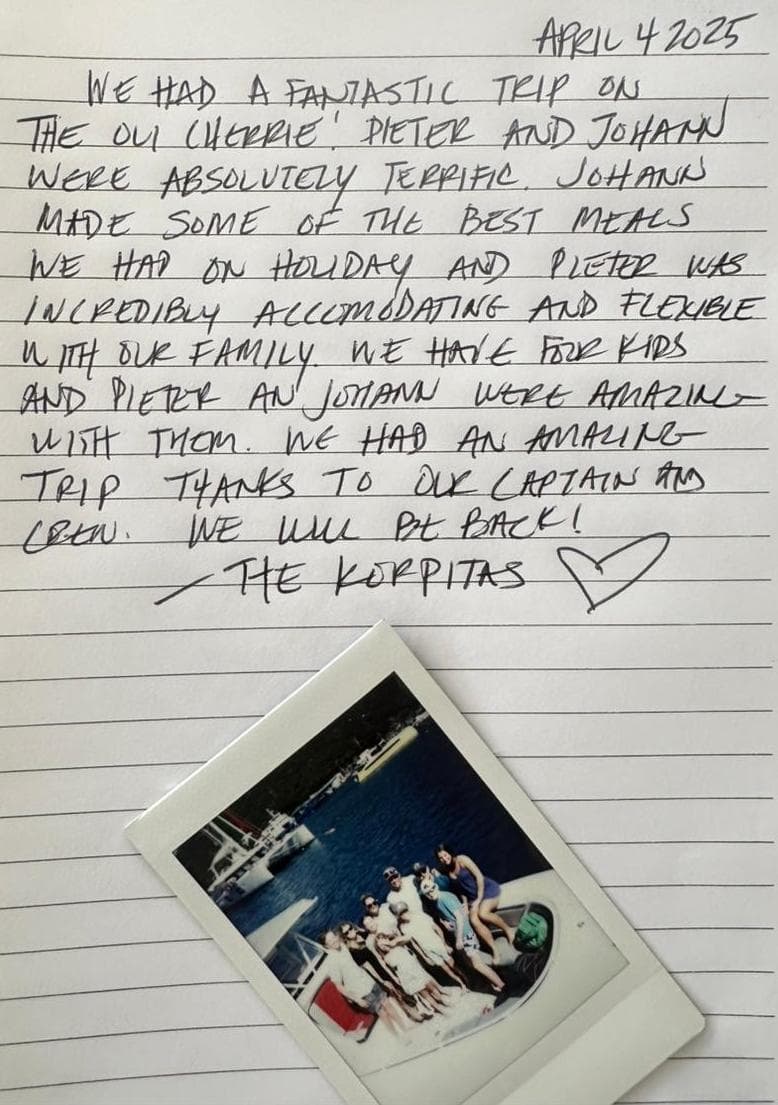 APRIL 4 2025
WE HAD A FANTASTIC TRIP ON
THE OUI CHERRIE! PIETER AND JOHANN
WERE ABSOLUTELY TERRIFIC. JOHANN
MADE SOME OF THE BEST MEALS
WE HAD ON HOLIDAY AND PIETER WAS
INCREDIBLY ACCOMODATING AND FLEXIBLE
WITH OUR FAMILY. WE HAVE FOUR KIDS
AND PIETER AN JOHANN WERE AMAZING
WITH THEM. WE HAD AN AMAZING
TRIP THANKS TO OUR CAPTAIN AND
CREW. WE WILL BE BACK!
— THE KORPITAS